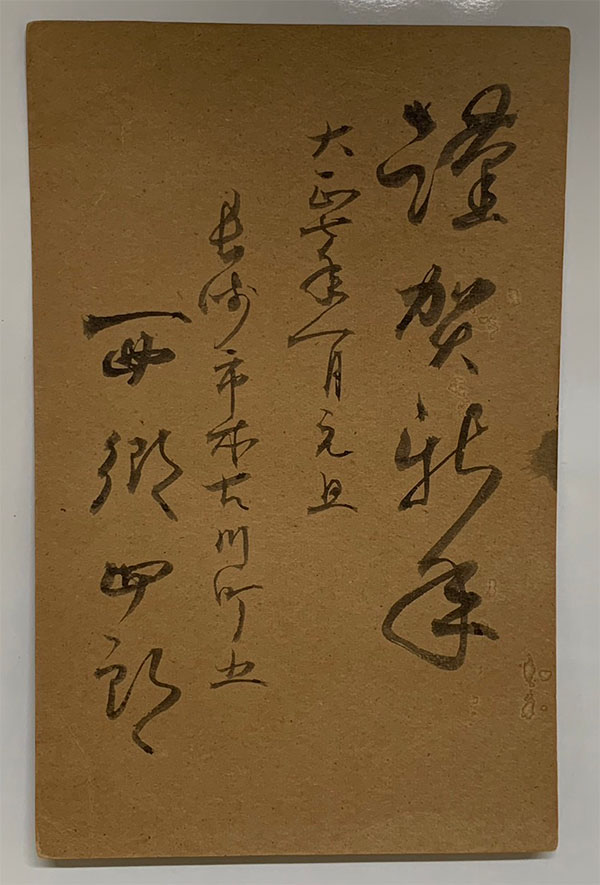 謹賀新年
大正七年一月元旦
長崎市本古川町五
西郷四郎